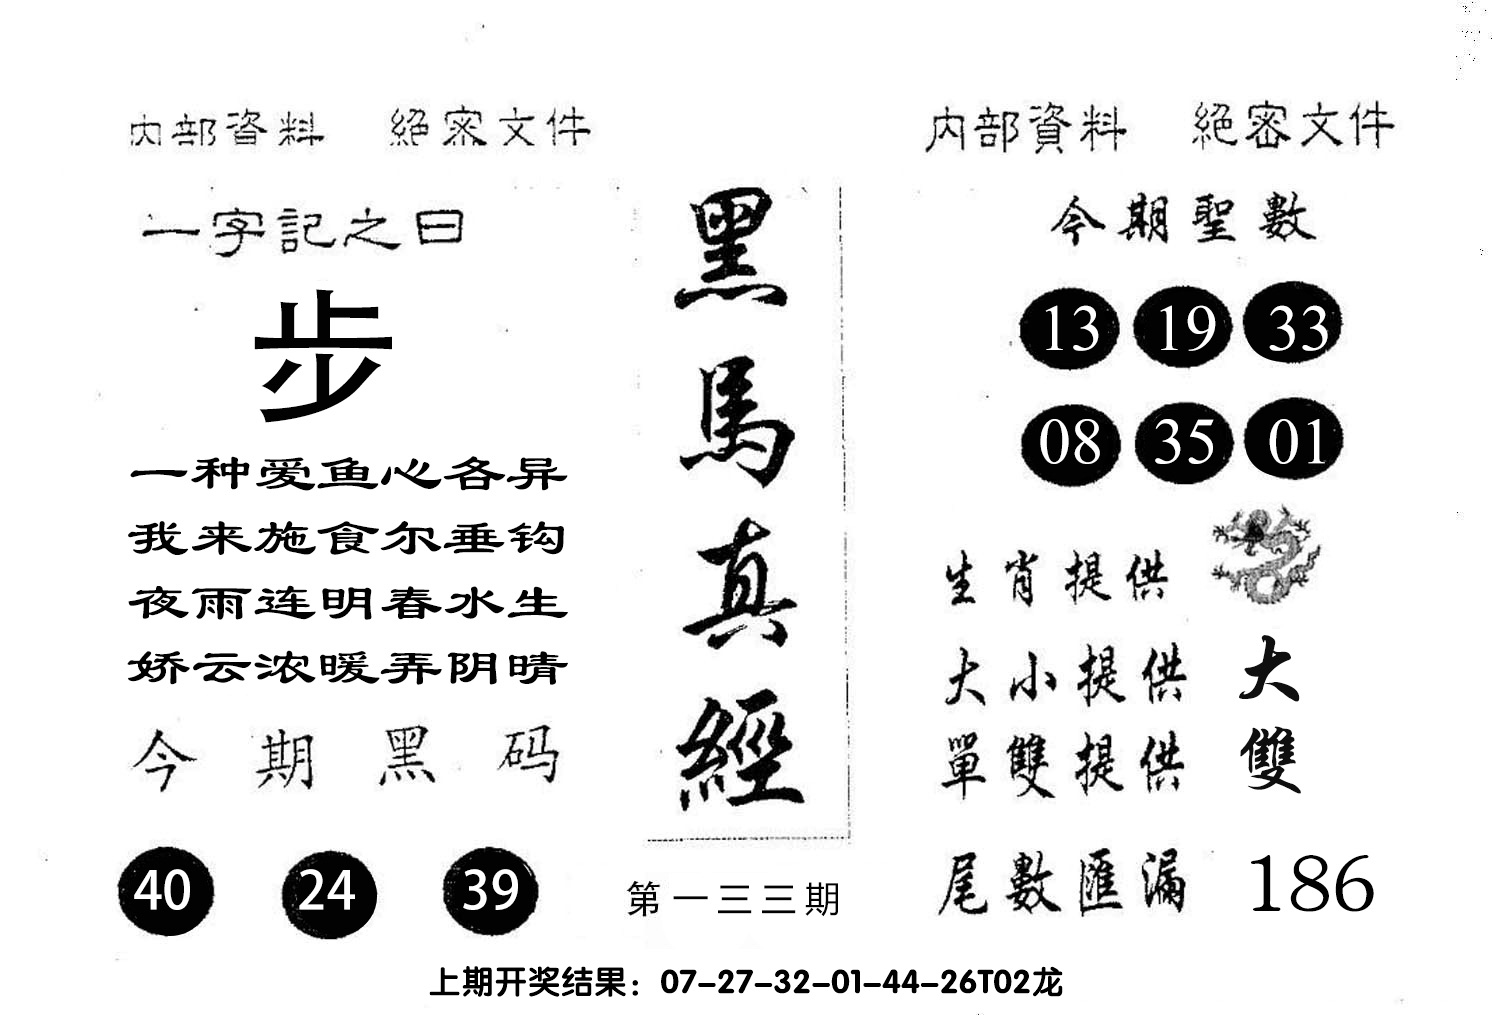 内部資料 絕密文件
一字記之曰
步
一种爱鱼心各异
我来施食尔垂钩
夜雨连明春水生
娇云浓暖弄阴晴
今期黑码
40 24 39
黑馬真經
第一三三期
内部資料 絕密文件
今期聖數
13 19 33
08 35 01
生肖提供
大小提供 大
單雙提供 雙
尾數匯漏 186
上期开奖结果：07-27-32-01-44-26T02龙